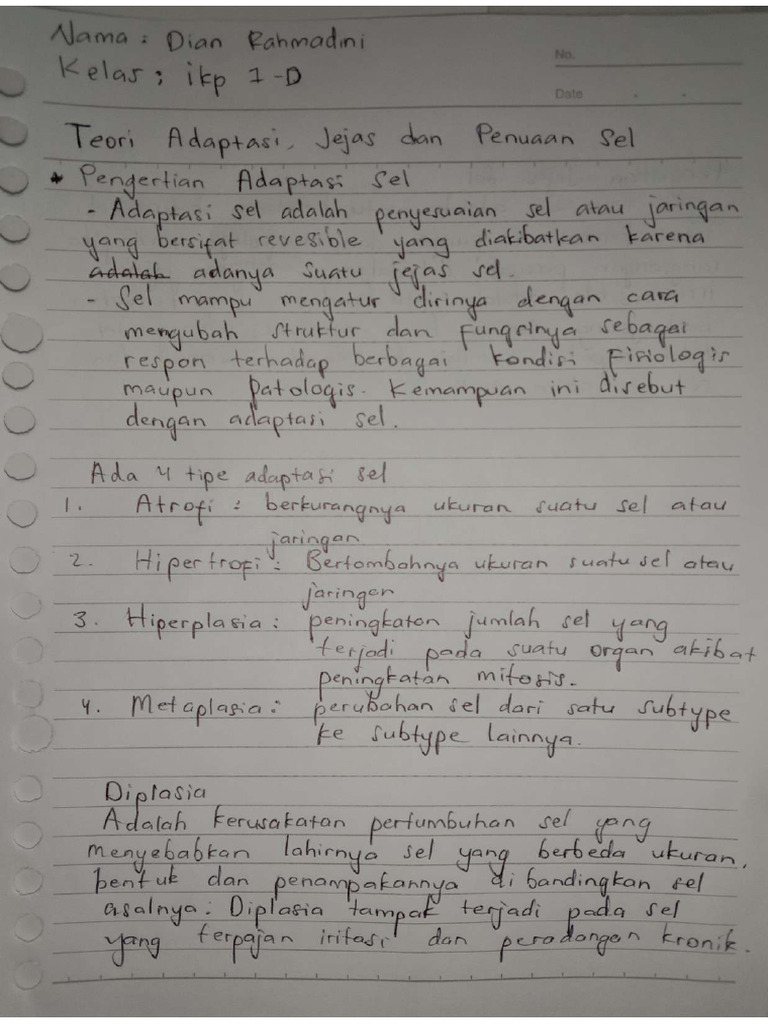 Nama : Dian Rahmadini
Kelas : ikp 1-D
No.
Date
Teori Adaptasi, Jejas dan Penuaan Sel
* Pengertian Adaptasi Sel
- Adaptasi sel adalah penyesuaian sel atau jaringan
yang bersifat revesible yang diakibatkan karena
adalah adanya suatu jejas sel.
- Sel mampu mengatur dirinya dengan cara
mengubah struktur dan fungsinya sebagai
respon terhadap berbagai kondisi fisiologis
maupun patologis. Kemampuan ini disebut
dengan adaptasi sel.
Ada 4 tipe adaptasi sel
1. Atrofi : berkurangnya ukuran suatu sel atau
jaringan
2. Hipertrofi : Bertambahnya ukuran suatu sel atau
jaringan
3. Hiperplasia : peningkatan jumlah sel yang
terjadi pada suatu organ akibat
peningkatan mitosis.
4. Metaplasia : perubahan sel dari satu subtype
ke subtype lainnya.
Diplasia
Adalah kerusakatan pertumbuhan sel yang
menyebabkan lahirnya sel yang berbeda ukuran,
bentuk dan penampakannya dibandingkan sel
asalnya. Diplasia tampak terjadi pada sel
yang terpajan iritasi dan peradangan kronik.